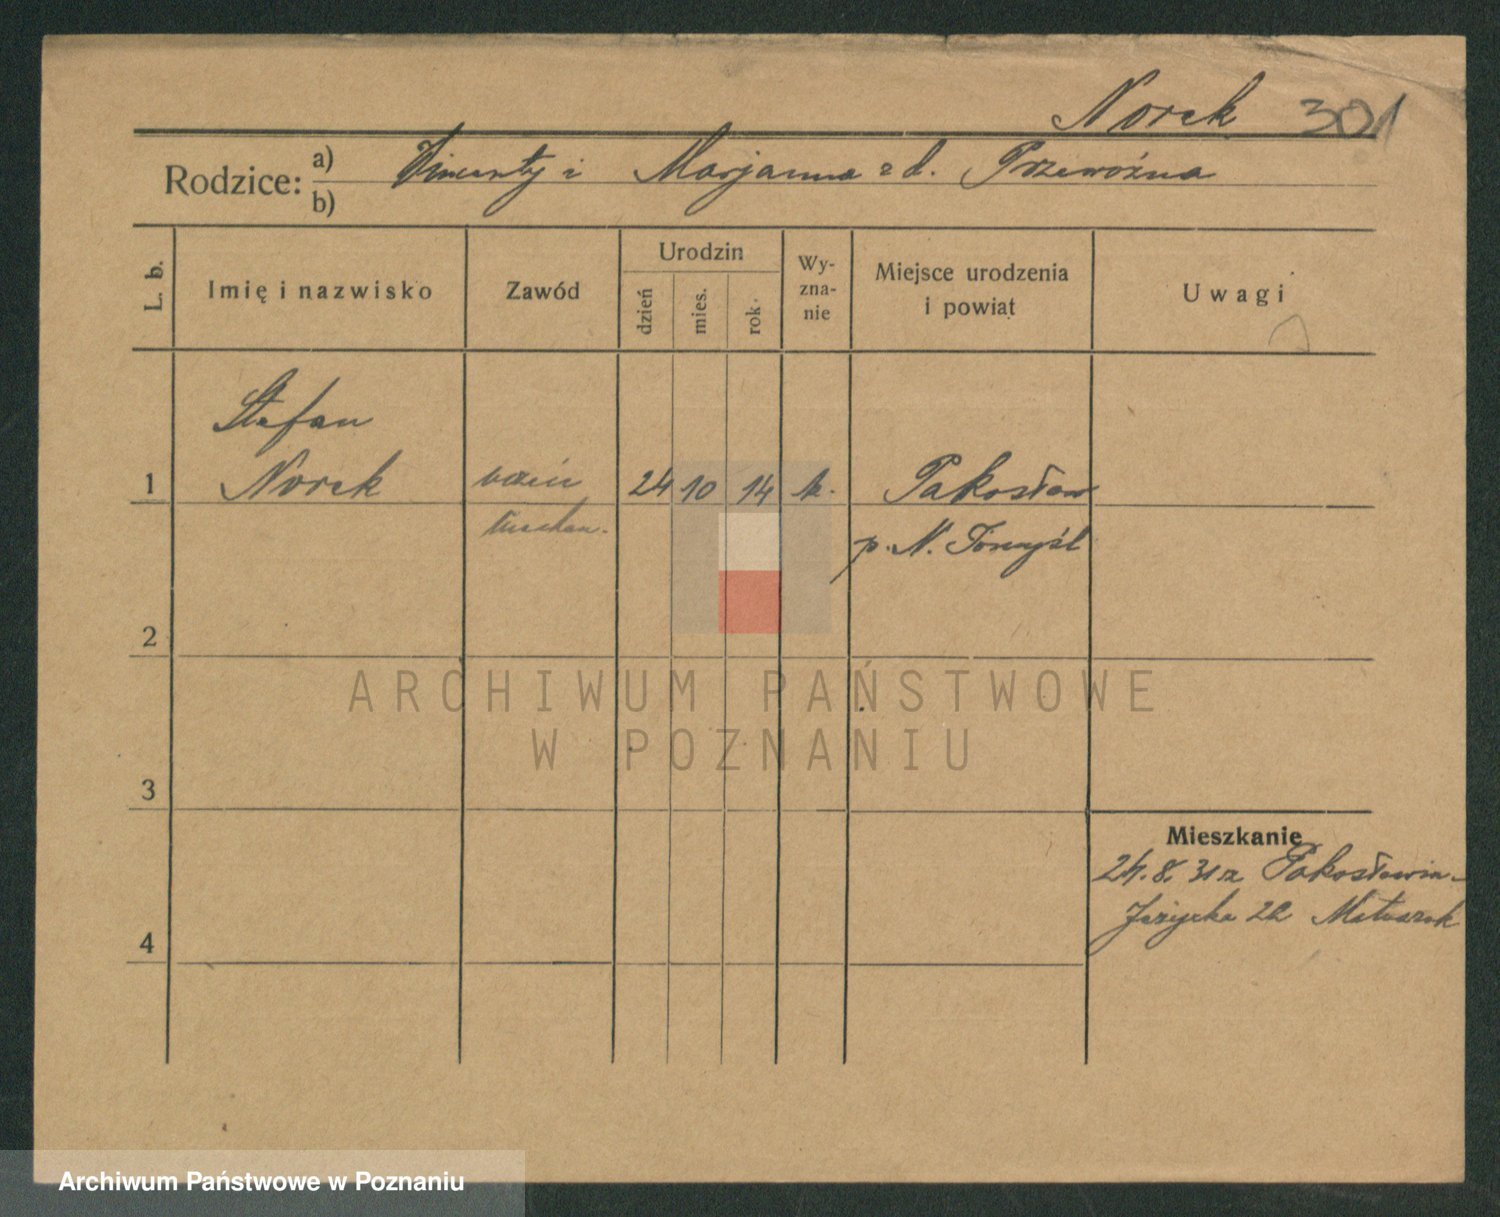 Norek 301
Rodzice: a) Wincenty i Marjanna z d. Przewoźna
b)
L. b. Imię i nazwisko Zawód Urodzin dzień mies. rok. Wy-zna-nie Miejsce urodzenia i powiat Uwagi
Stefan
1 Norek uczeń 24 10 14 k. Pakosław
p. N. Tomyśl
2
ARCHIWUM PAŃSTWOWE
W POZNANIU
3
Mieszkanie
24.8.31 z Pakosławia-
4 Jeżycka
Archiwum Państwowe w Poznaniu